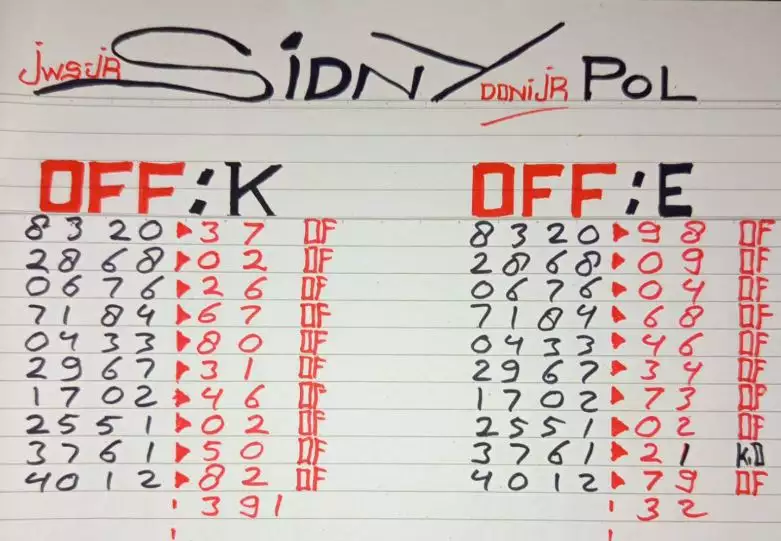 jws:jR SiDNY DONiJR POL
OFF:K OFF:E
8320 ▶ 37 OF 8320 ▶ 98 OF
2868 ▶ 02 OF 2868 ▶ 09 OF
0676 ▶ 26 OF 0676 ▶ 04 OF
7184 ▶ 67 OF 7184 ▶ 68 OF
0433 ▶ 80 OF 0433 ▶ 46 OF
2967 ▶ 31 OF 2967 ▶ 34 OF
1702 ▶ 46 OF 1702 ▶ 73 OF
2551 ▶ 02 OF 2551 ▶ 02 OF
3761 ▶ 50 OF 3761 ▶ 21 K.D
4012 ▶ 82 OF 4012 ▶ 79 OF
391 32